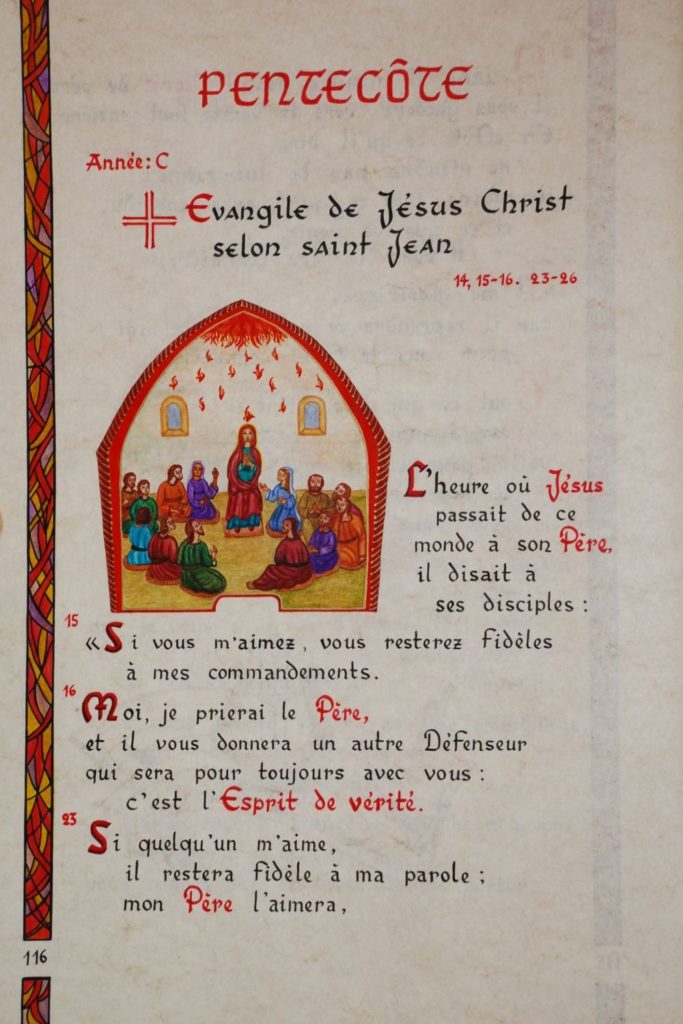 PENTECÔTE
Année: C
Evangile de Jésus Christ
selon saint Jean
14, 15-16. 23-26
L'heure où Jésus
passait de ce
monde à son Père,
il disait à
ses disciples :
15
«Si vous m'aimez, vous resterez fidèles
à mes commandements.
16
Moi, je prierai le Père,
et il vous donnera un autre Défenseur
qui sera pour toujours avec vous :
c'est l'Esprit de vérité.
23
Si quelqu'un m'aime,
il restera fidèle à ma parole ;
mon Père l'aimera,
116